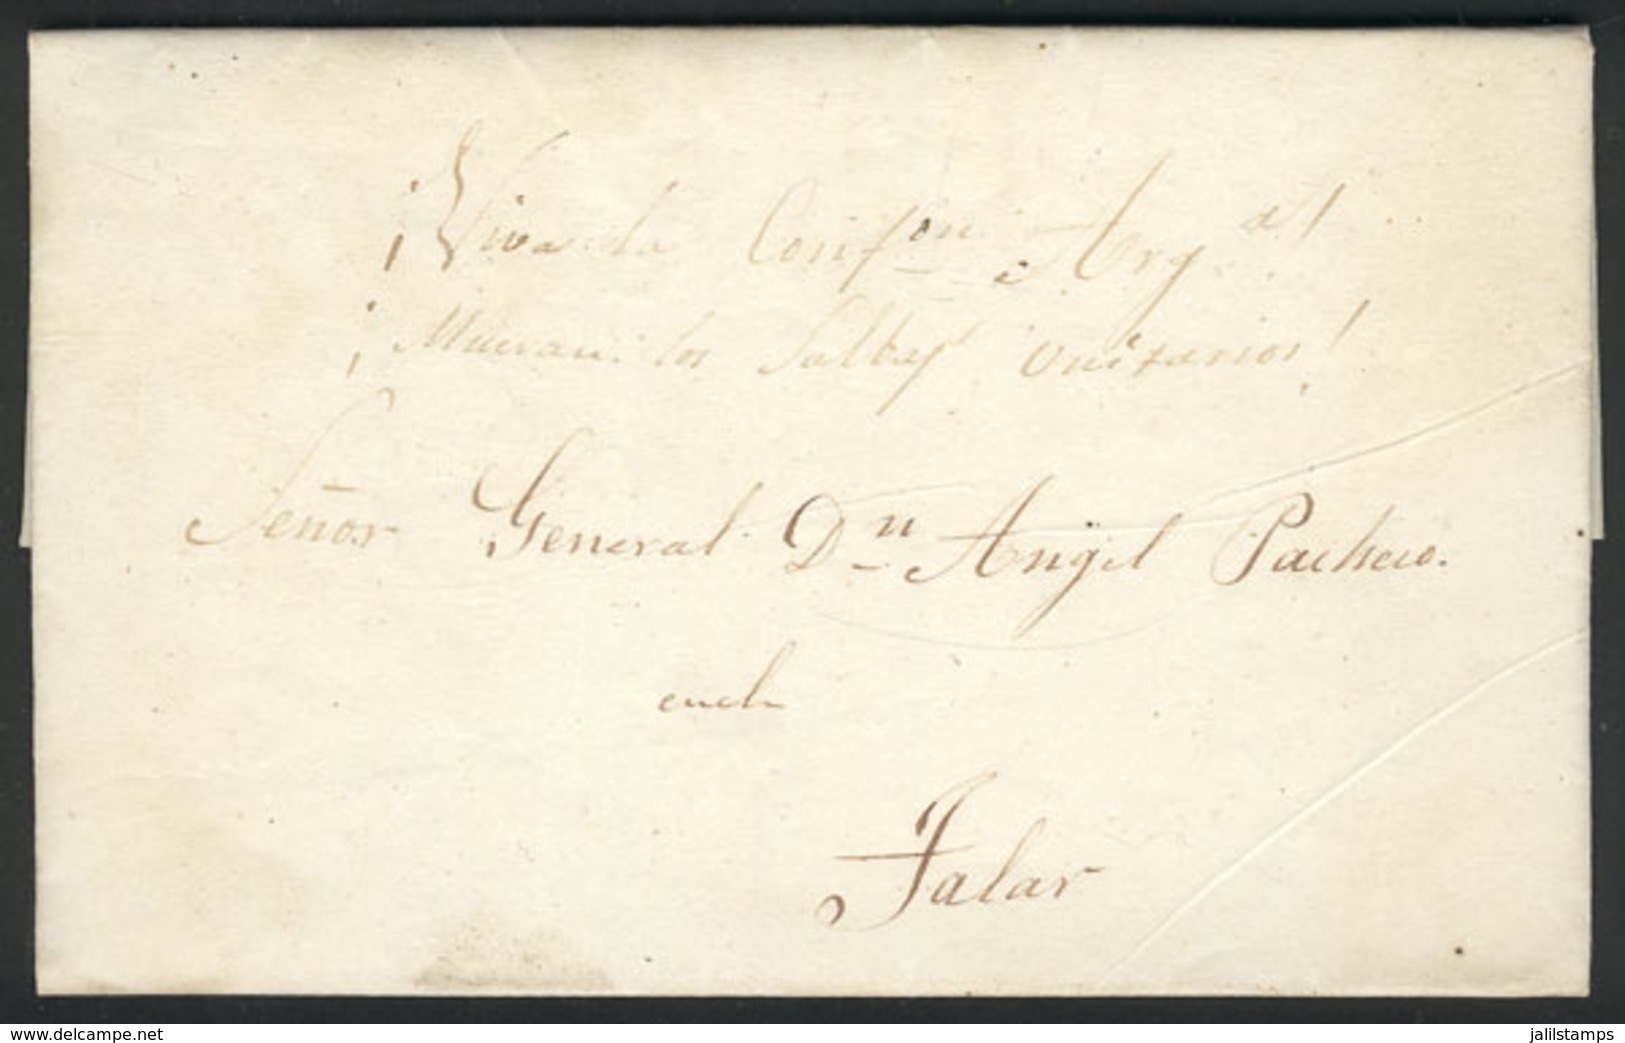 ¡Viva la Confon Arga!
¡Mueran los Salbag Unitarios!
Señor General Dn Angel Pacheco.
en el
Talar
www.delcampe.net
jalilstamps